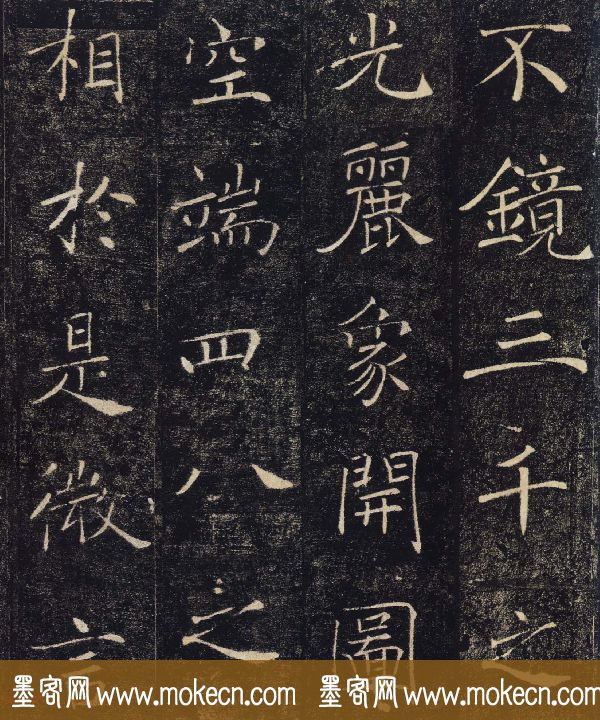 不鏡三千之
光麗象開圖
空端四八之
相於是微言
墨客网 www.mokecn.com 墨客网 www.mokecn.com